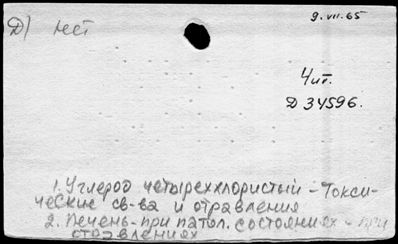 9.VII.65
Д) мест
Чит.
D 34596.
1. Углерод четыреххлористый - Токси-
ческие св-ва и отравления
2. Печень - при патол. состояниях - при
отравлениях